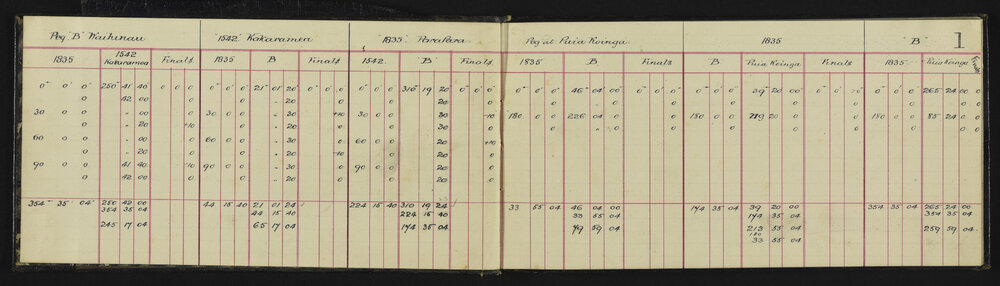 Peg "B" Waihinau 1542 Kakaramea 1835 ParaPara Peg at Puia Koinga 1835 "B" 1
1835 1542 Kakaramea Finals 1835 B Finals 1542 "B" Finals 1835 B Finals B Puia Keinga Finals 1835 Puia Koinga Finals
0° 0' 0" 250° 41 40 0 0 0 0° 0' 0" 21° 01' 20 0° 0' 0" 0° 0' 0" 310° 19 20 0° 0' 0" 0° 0' 0" 46° 04' 00 0° 0' 0" 0° 0' 0" 39° 20 00 0° 0' 0" 0° 0' 0" 265 24 00 0
0 42 00 0 0 " 20 0 0 20 0 0 0 0 0 0 0 0
30 0 0 " 00 0 30 0 0 " 30 +10 30 0 0 30 -10 180 0 0 226 04 0 0 180 0 0 219 20 0 180 0 0 85 24 0 0
0 " 20 +10 0 " 20 0 0 30 0 0 " 0 0 0 0 0 0
60 0 0 " 00 0 60 0 0 " 30 0 60 0 0 20 +10
0 " 20 0 0 " 20 -10 0 20 0
90 0 0 41 40 -10 90 0 0 " 30 0 90 0 0 20 0
0 42 00 0 0 " 20 0 0 20 0
354° 35 04" 250 42 00 44 15 40 21 01 24 224 15 40 310 19 24 33 55 04 46 04 00 174 35 04 39 20 00 354 35 04 265 24 00
354 35 04 44 15 40 224 15 40 33 55 04 174 35 04 354 35 04
245 17 04 65 17 04 174 35 04 79 59 04 213 55 04 259 59 04
180
33 55 04